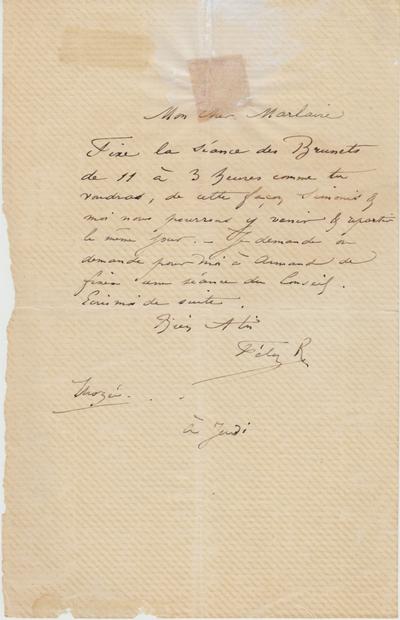 Mon cher Marlaire
Fixe la séance des Brunets
de 11 à 3 heures comme tu
voudras, de cette façon Simonis &
moi nous pourrons y venir & repartir
le même jour. - Je demande ou
demande pour moi à Armand de
fixer une séance du Conseil.
Ecris moi de suite.
Bien à toi
R
à Jeudi